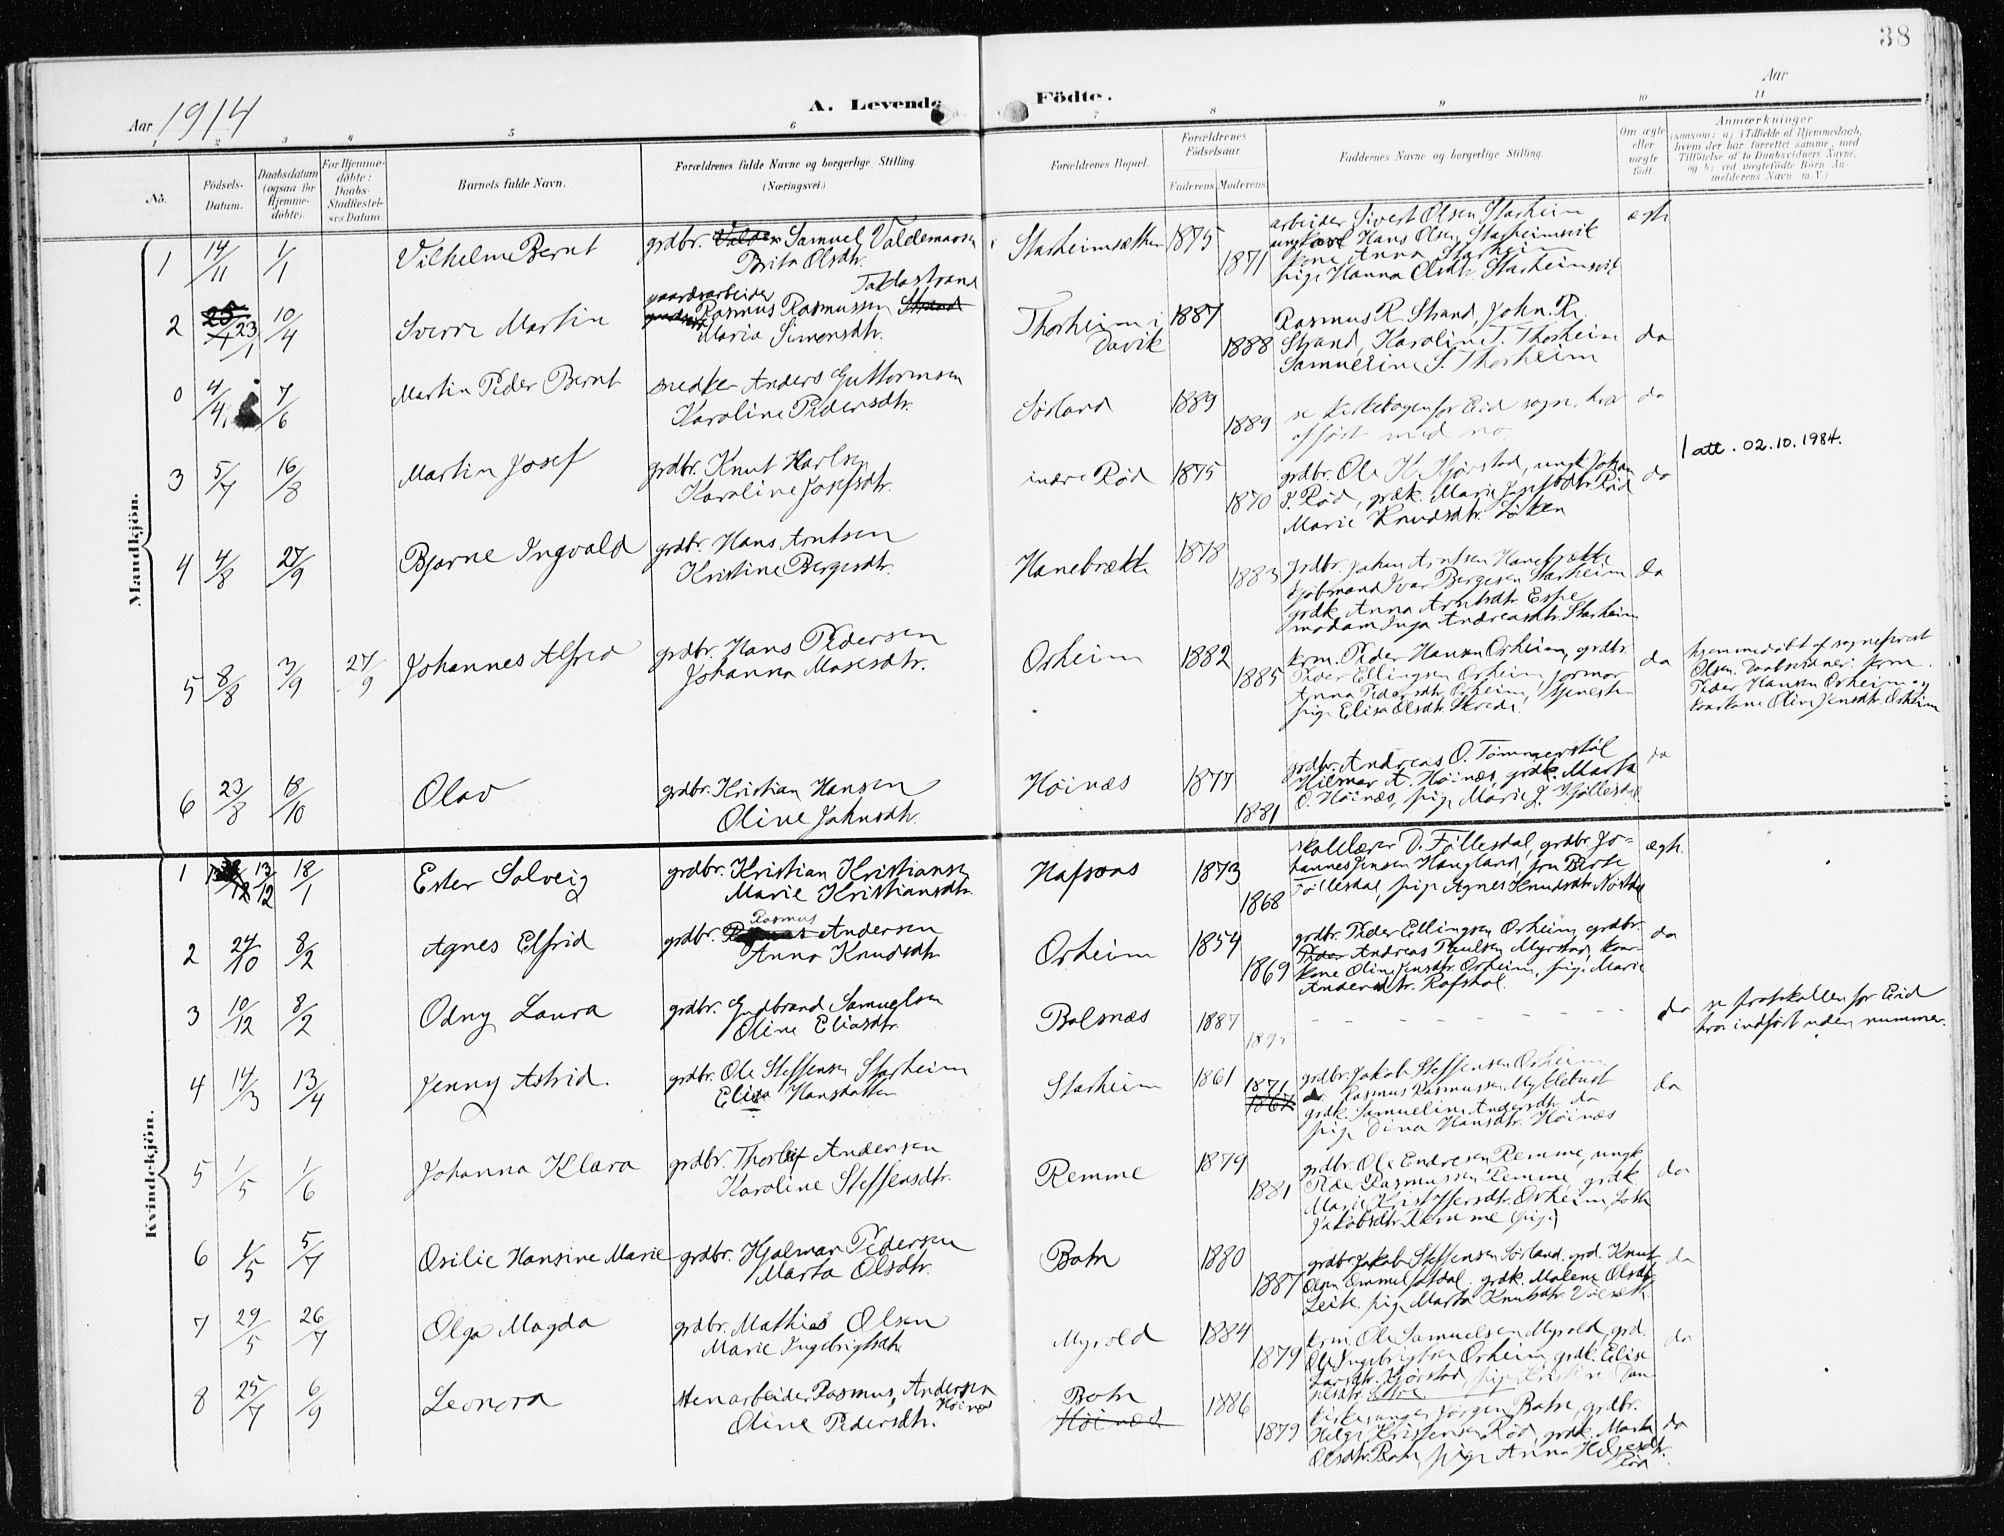 38
Aar 1914
A. Levende Födte.
Aar
1 2 3 4 5 6 7 8 9 10 11
No.
Födsels-Datum.
Daabsdatum (ogsaa for Hjemme-döbte).
For Hjemme-döbte: Daabs-Stadfæstel-ses Datum.
Barnets fulde Navn.
Forældrenes fulde Navne og borgerlige Stilling. (Næringsvei.)
Forældrenes Bopæl.
Forældrenes Födselsaar.
Faderens. Moderens.
Faddernes Navne og borgerlige Stilling.
Om ægte eller uægte födt.
Anmærkninger
(saasom: a) i Tilfælde af Hjemmedaab, hvem der har forrettet samme, med Tilföielse af to Daabsvidners Navne, og b) ved uægtefödte Börn An-melderens Navn m. V.)
Mandkjön.
1 14/11 1/1 Vilhelm Bernt grdbr. Samuel Valdemarsen Brita Olsdtr. Starheimsætten 1875 1871
arbeider Sivert Olsen Starheim
ungkarl Hans Olsen Starheimsvik
kone Anna Starheim
pige Hanna Olsdtr. Starheimsvik
ægte
2 23/1 10/4 Sverre Martin gaardsarbeider Rasmus Rasmussen Strand Taklostrand Maria Simonsdtr. Thorheim i Davik 1887 1888
Rasmus R. Strand, John R.
Strand, Karoline T. Thorheim
Samueline S. Thorheim
da
0 4/4 7/6 Martin Peder Bernt snedker Anders Guttormsen Karoline Pedersdtr. Sørland 1889 1889
se kirkebogen for Eid sogn, hvor
opført med no
da
3 5/7 16/8 Martin Josef grdbr. Knut Karlsen Karoline Josefsdtr. indre Rød 1875 1870
grdbr. Ole K. Hjørstad, ungk Johan
J. Rød, grdk. Marie Josefsdtr. Rød
Marie Knudsdtr. Løken
da
att. 02.10.1984.
4 4/8 27/9 Bjarne Ingvald grdbr. Hans Arntsen Kristine Bergesdtr. Hanebrække 1878 1883
grdbr. Johan Arntsen Hanebrække
kjøbmand Ivar Bergesen Starheim
grdk. Anna Arntsdtr. Espe
madam Inga Andreasdtr. Starheim
da
5 8/8 3/9 27/9 Johannes Alfred grdbr. Hans Pedersen Johanna Masesdtr. Orheim 1882 1885
krm. Peder Hansen Orheim, grdbr.
Peder Ellingsen Orheim, jormor
Anna Pedersdtr. Orheim, tjeneste-
pige Elisa Olsdtr. Skrede.
da
hjemmedøbt af sogneprest
Olsen. Daabsvidner: krm.
Peder Hansen Orheim og
kaarkone Oline Jensdtr. Orheim
6 23/8 18/10 Olav grdbr. Kristian Hansen Oline Johnsdtr. Høinæs 1877 1881
grdbr. Andreas O. Tømmerstøl
Hilmar A. Høinæs, grdk. Marta
O. Høinæs, pige Marie J. Hjøllesdal
da
Kvindekjön.
1 13/12 18/1 Ester Solveig grdbr. Kristian Kristiansen Marie Kristiansdtr. Hafsaas 1873 1868
skolelærer D. Føllesdal, grdbr. Jo-
hannes Jensen Haugland, fru Berte
Føllesdal, pige Agnes Knudsdtr. Nøstdal
ægte.
2 24/10 8/2 Agnes Elfrid grdbr. Rasmus Andersen Anna Knudsdtr. Orheim 1854 1869
grdbr. Peder Ellingsen Orheim, grdbr.
Peder Andreas Paulsen Myrstad, kaar-
kone Oline Jensdtr. Orheim, pige Marie
Andersdtr. Rafstal.
da
3 10/12 8/2 Odny Laura grdbr. Gudbrand Samuelsen Oline Eliasdtr. Balsnæs 1887 1895
- - - - - - - -
da
se protokollen for Eid
hvor indført uden nummer.
4 14/3 13/4 Jenny Astrid. grdbr. Ole Steffensen Starheim Elisa Hansdatter Starheim 1861 1871 1867
grdbr. Jakob Steffensen Orheim
Rasmus Rasmussen Myklebust
grdk. Samueline Andersdtr. da
pige Dina Hansdtr. Høinæs
da
5 1/5 1/6 Johanna Klara grdbr. Thorleif Andersen Karoline Steffensdtr. Remme 1879 1881
grdbr. Ole Endresen Remme, ungk
Peder Rasmussen Remme, grdk
Marie Kristoffersdtr. Orheim, Lotte
Jakobsdtr. Remme (pige)
da
6 1/5 5/7 Osilie Hansine Marie grdbr. Hjalmar Pedersen Marta Olsdtr. Botn 1880 1887
grdbr. Jakob Steffensen Sørland. grd. Knut
Olsen Ommelsfotdal. grdk. Malene Olsdtr
Leite. pige Marta Knutsdtr.
da
7 29/5 26/7 Olga Magda grdbr. Mathias Olsen Marie Ingebrigtsdtr. Myrold 1884 1879
krm. Ole Samuelsen Myrold, grd.
Ole Ingebrigtsen Orheim, grdk. Elise
Larsdtr. Hjørstad, pige Kristine Dan-
ielsdtr.
da
8 25/7 6/9 Leonora stenarbeider Rasmus Andersen Høinæs Oline Pedersdtr. Botn Høinæs 1886 1879
kirkesanger Jørgen Botn, grdbr.
Helge Kristensen Rød, grdk. Marta
Olsdtr. Botn, pige Anna Helgesdtr.
Rød
da